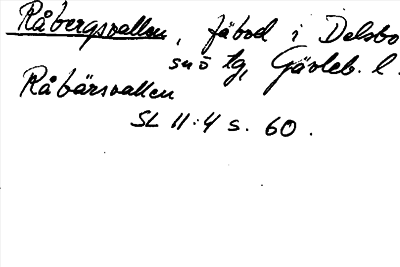 Råbergsvallen, fäbod i Delsbo
snö tg, Gävleb. l.
Råbärsvallen
SL 11:4 s. 60.